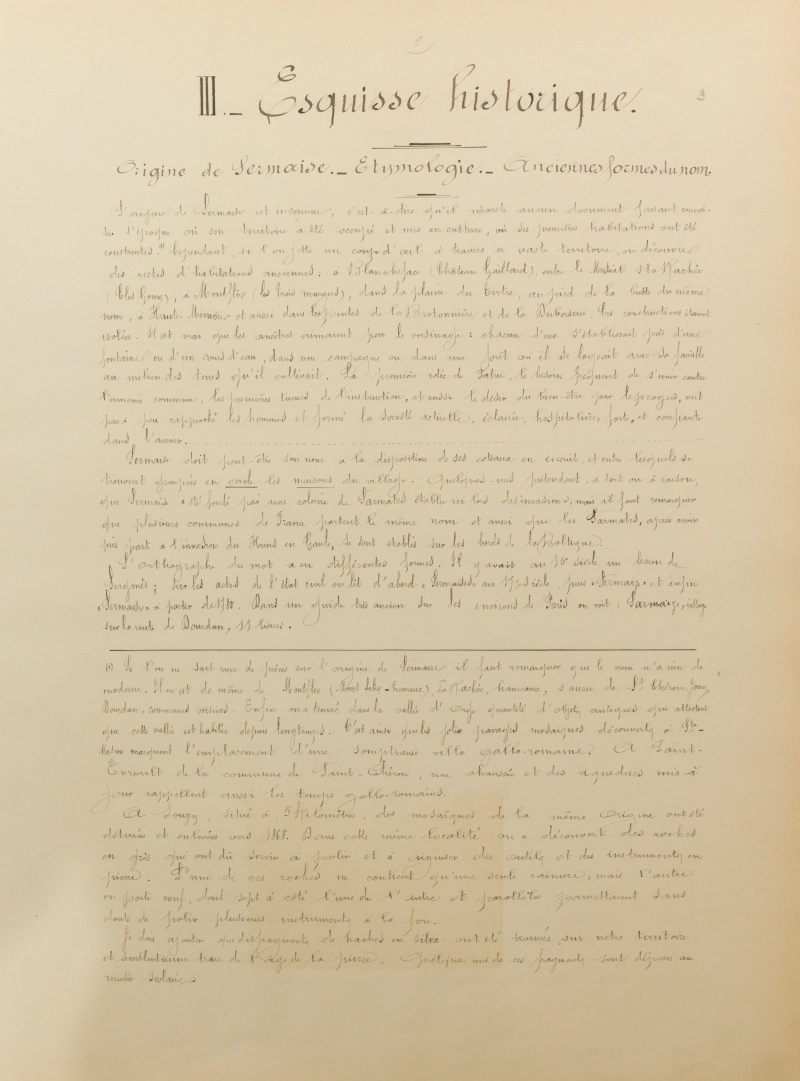 3
III._ Esquisse historique.
Origine de Sermaise._ Etymologie._ Anciennes formes du nom.
L'origine de Sermaise est inconnue, c'est-à-dire qu'il n'existe aucun document faisant connaî-
tre l'époque où son territoire a été occupé et mis en culture, où ses premières habitations ont été
construites.(1) Cependant, si l'on jette un coup d'œil à travers ce vaste territoire, on découvre
des restes d'habitations anciennes : à Blancheface (Château Gaillard), entre le Mesnil et la Rachée
(Les Gouys), à Montflix (les trois maisons), dans la plaine du Tertre, au pied de la butte du même
nom, à Haute-Minière et aussi dans les pentes de la Bretonnière et de la Duboiserie. Ces constructions étaient
isolées. Il est vrai que les ancêtres aimaient peu le voisinage : chacun d'eux s'établissait près d'une
fontaine ou d'un cours d'eau, dans une campagne ou dans une forêt où il se logeait avec sa famille
au milieu des terres qu'il cultivait. La première idée de Patrie, le besoin fréquent de s'unir contre
l'ennemi commun, les premières lueurs de l'instruction, et aussi le désir du bien-être par le progrès, ont
peu à peu rapproché les hommes et formé la société actuelle, éclairée, hospitalière, forte, et confiante
dans l'avenir.
Sermaise doit peut-être son nom à la disposition de ses coteaux en circuit, et entre lesquels se
trouvent groupées en cercle les maisons du village. Quelques-uns prétendent, à tort ou à raison,
que Sermaise a été fondé par une colonie de Sarmates établie ici lors des invasions, mais il faut remarquer
que plusieurs communes de France portent le même nom et aussi que les Sarmates, après avoir
pris part à l'invasion des Huns en Gaule, se sont établis sur les bords de la Baltique.
L'orthographe du mot a eu différentes formes. Il y avait au 15e siècle un baron de
Sergmès ; sur les actes de l'état civil on lit d'abord « Sermaises » au 17e siècle, puis « Sermaize » et enfin
« Sermaise » à partir de 1780. Dans un guide très ancien sur les environs de Paris on voit : Sarmaize, village
sur la route de Dourdan, 11 lieues.
(1) Si l'on ne sait rien de précis sur l'origine de Sermaise il faut remarquer que le nom n'a rien de
moderne. Il en est de même de Montflix (Mont Félix-hameau), La Rachée, hameaux, et aussi de St Chéron, Jouy,
Dourdan, communes voisines. Enfin on a trouvé dans la vallée d'Orge quantité d'objets antiques qui attestent
que cette vallée est habitée depuis longtemps. C'est ainsi que les jolis pavages mosaïques découverts à Ste-
Mesme marquent l'emplacement d'une somptueuse villa gallo-romaine. A Saint-
Evroult de la commune de Saint-Chéron, une chaussée et des aqueducs mis à
jour rappellent aussi les temps gallo-romains.
A Souzy, situé à 5 kilomètres, des mosaïques de la même origine ont été
déterrées et enlevées vers 1868. Dans cette même localité on a découvert des roches
en grès qui ont dû servir à polir et à aiguiser des outils et des instruments en
pierre. L'une de ces roches ne contient qu'une seule rainure, mais l'autre
en porte neuf, dont sept à côté l'une de l'autre et parallèles permettaient sans
doute de polir plusieurs instruments à la fois.
Je dois ajouter que des fragments de haches en silex ont été trouvés sur notre territoire
et semblent être de l'âge de la pierre. Quelques-uns de ces fragments sont déposés au
musée scolaire.